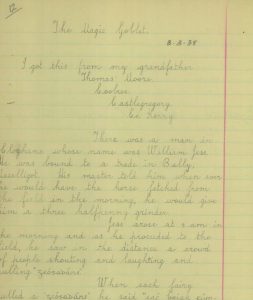 The Magic Goblet.
8-3-38
I got this from my grandfather
Thomas Moore
Castlegregory
Co Kerry.
There was a man in
whose name was William Fess.
He was bound to a trade in Bally
. His master told him when ever
he would have the horse fetched from
the field in the morning, he would give
him a three halfpenny grinder.
Fess arose at 2 am in
the morning and as he proceeded to the
field, he saw in the distance a crowd
of people shouting and laughing and
calling
When each fairy
called a he said